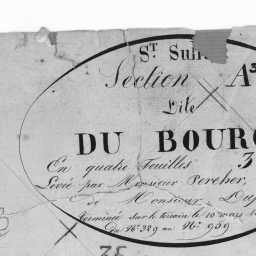 St. Sulp
Section A
Dite
DU BOURG
En quatre feuilles 3
Levée par Monsieur Percher,
de Monsieur Du
Terminée sur le terrain le 10 mars
Du No. 389 au No. 959